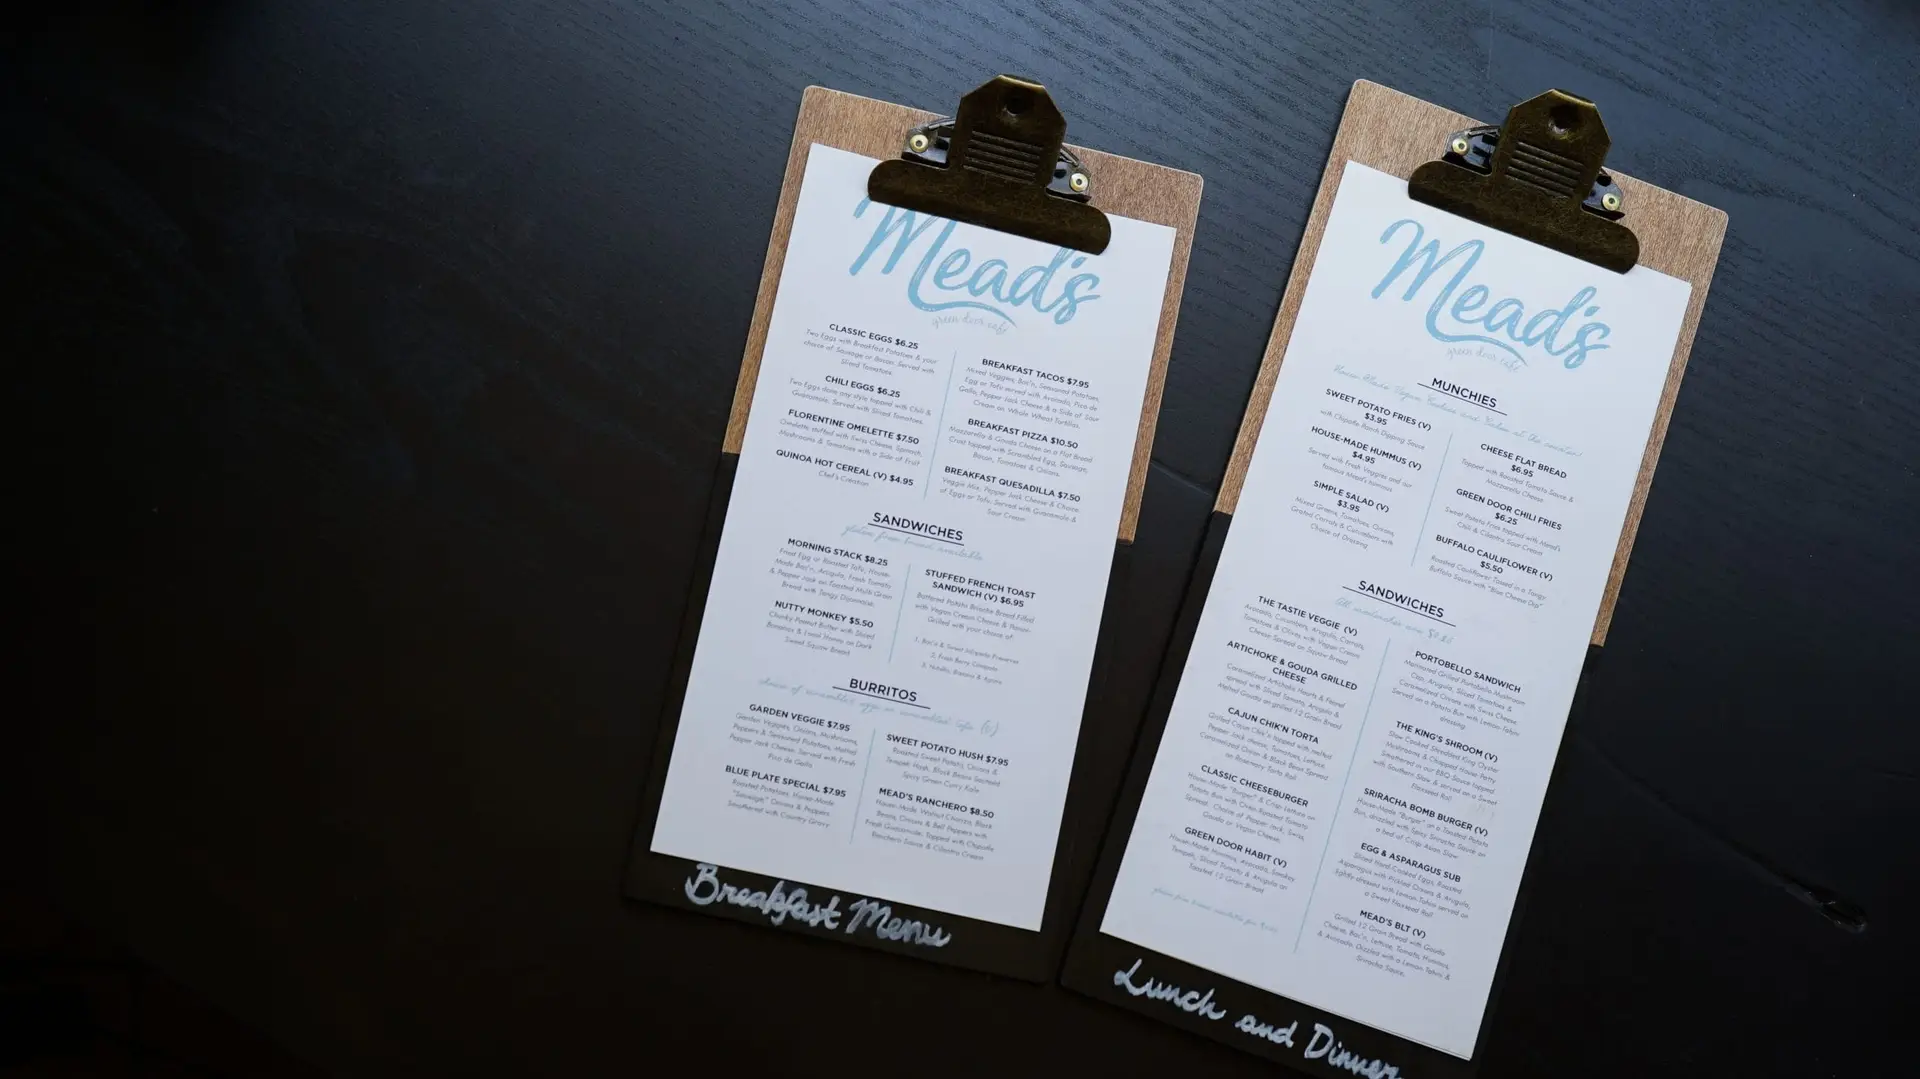 Mead's
green door cafe
CLASSIC EGGS $6.25
Two Eggs with Breakfast Potatoes & your
choice of Sausage or Bacon. Served with
Sliced Tomatoes.
CHILI EGGS $6.25
Two Eggs done any style topped with Chili &
Guacamole. Served with Sliced Tomatoes.
FLORENTINE OMELETTE $7.50
Omelette stuffed with Swiss Cheese, Spinach,
Mushrooms & Tomatoes with a Side of Fruit
QUINOA HOT CEREAL (V) $4.95
Chef's Creation
BREAKFAST TACOS $7.95
Mixed Veggies, Bac'n, Seasoned Potatoes,
Egg or Tofu served with Avocado, Pico de
Gallo, Pepper Jack Cheese & a Side of Sour
Cream on Whole Wheat Tortillas.
BREAKFAST PIZZA $10.50
Mozzarella & Gouda Cheese on a Flat Bread
Crust topped with Scrambled Egg, Sausage,
Bacon, Tomatoes & Onions.
BREAKFAST QUESADILLA $7.50
Veggie Mix, Pepper Jack Cheese & Choice
of Eggs or Tofu. Served with Guacamole &
Sour Cream
SANDWICHES
gluten free bread available
MORNING STACK $8.25
Fried Egg or Roasted Tofu, House-
Made Bac'n, Arugula, Fresh Tomato
& Pepper Jack on Toasted Multi Grain
Bread with Tangy Dijonnaise.
NUTTY MONKEY $5.50
Chunky Peanut Butter with Sliced
Bananas & Local Honey on Dark
Sweet Squaw Bread
STUFFED FRENCH TOAST
SANDWICH (V) $6.95
Battered Potato Brioche Bread Filled
with Vegan Cream Cheese &
Grilled with your choice of:
1. Bac'n & Sweet Jalapeño Preserves
2. Fresh Berry Compote
3. Nutella, Banana & Agave
BURRITOS
choice of scrambled eggs or scrambled tofu (v)
GARDEN VEGGIE $7.95
Garden Veggies, Onions, Mushrooms,
Peppers & Seasoned Potatoes, Melted
Pepper Jack Cheese. Served with Fresh
Pico de Gallo
BLUE PLATE SPECIAL $7.95
Roasted Potatoes, House-Made
"Sausage," Onions & Peppers
Smothered with Country Gravy
SWEET POTATO HUSH $7.95
Roasted Sweet Potato, Onions &
Tempeh Hash, Black Beans
Spicy Green Curry Kale
MEAD'S RANCHERO $8.50
House-Made Walnut Chorizo, Black
Beans, Onions & Bell Peppers with
Fresh Guacamole. Topped with Chipotle
Ranchero Sauce & Cilantro Cream
Breakfast Menu
Mead's
green door cafe
MUNCHIES
SWEET POTATO FRIES (V)
$3.95
with Chipotle Ranch Dipping Sauce
HOUSE-MADE HUMMUS (V)
$4.95
Served with Fresh Veggies and our
famous Mead's hummus
SIMPLE SALAD (V)
$3.95
Mixed Greens, Tomatoes, Onions,
Grated Carrots & Cucumbers with
Choice of Dressing
CHEESE FLAT BREAD
$6.95
Topped with Roasted Tomato Sauce &
Mozzarella Cheese
GREEN DOOR CHILI FRIES
$6.25
Sweet Potato Fries topped with Mead's
Chili & Cilantro Sour Cream
BUFFALO CAULIFLOWER (V)
$5.50
Roasted Cauliflower Tossed in a Tangy
Buffalo Sauce with "Blue Cheese Dip"
SANDWICHES
All sandwiches are
THE TASTIE VEGGIE (V)
Avocado, Cucumbers, Arugula, Carrots,
Tomatoes & Olives with Vegan Cream
Cheese Spread on Squaw Bread
ARTICHOKE & GOUDA GRILLED
CHEESE
Caramelized Artichoke Hearts &
spread with Sliced Tomato, Arugula &
Melted Gouda on grilled 12 Grain Bread
CAJUN CHIK'N TORTA
Grilled Cajun Chik'n topped with melted
Pepper Jack cheese, Tomatoes, Lettuce,
Caramelized Onion & Black Bean Spread
on Rosemary Torta Roll
CLASSIC CHEESEBURGER
House-Made "Burger" & Crisp Lettuce on
Potato Bun with Oven Roasted Tomato
Spread. Choice of Pepper Jack, Swiss,
Gouda or Vegan Cheese.
GREEN DOOR HABIT (V)
House-Made Hummus, Avocado, Smokey
Tempeh, Sliced Tomato & Arugula on
Toasted 12 Grain Bread
PORTOBELLO SANDWICH
Marinated Grilled Portobello Mushroom
Cap, Arugula, Sliced Tomatoes &
Caramelized Onions with Swiss Cheese.
Served on a Potato Bun with Lemon Tahini
dressing.
THE KING'S SHROOM (V)
Slow Cooked Shredded King Oyster
Mushrooms & Chopped House Patty
Smothered in our BBQ Sauce topped
with Southern Slaw & served on a Sweet
Flaxseed Roll
SRIRACHA BOMB BURGER (V)
House-Made "Burger" on a Toasted Potato
Bun, drizzled with Spicy Sriracha Sauce on
a bed of Crisp Asian Slaw
EGG & ASPARAGUS SUB
Sliced Hard Cooked Eggs, Roasted
Asparagus with Pickled Onions & Arugula,
lightly dressed with Lemon Tahini served on
a Sweet Flaxseed Roll
MEAD'S BLT (V)
Grilled 12 Grain Bread with Gouda
Cheese, Bac'n, Lettuce, Tomato, Hummus,
& Avocado, Drizzled with a Lemon Tahini &
Sriracha Sauce.
gluten free bread available for
Lunch and Dinner